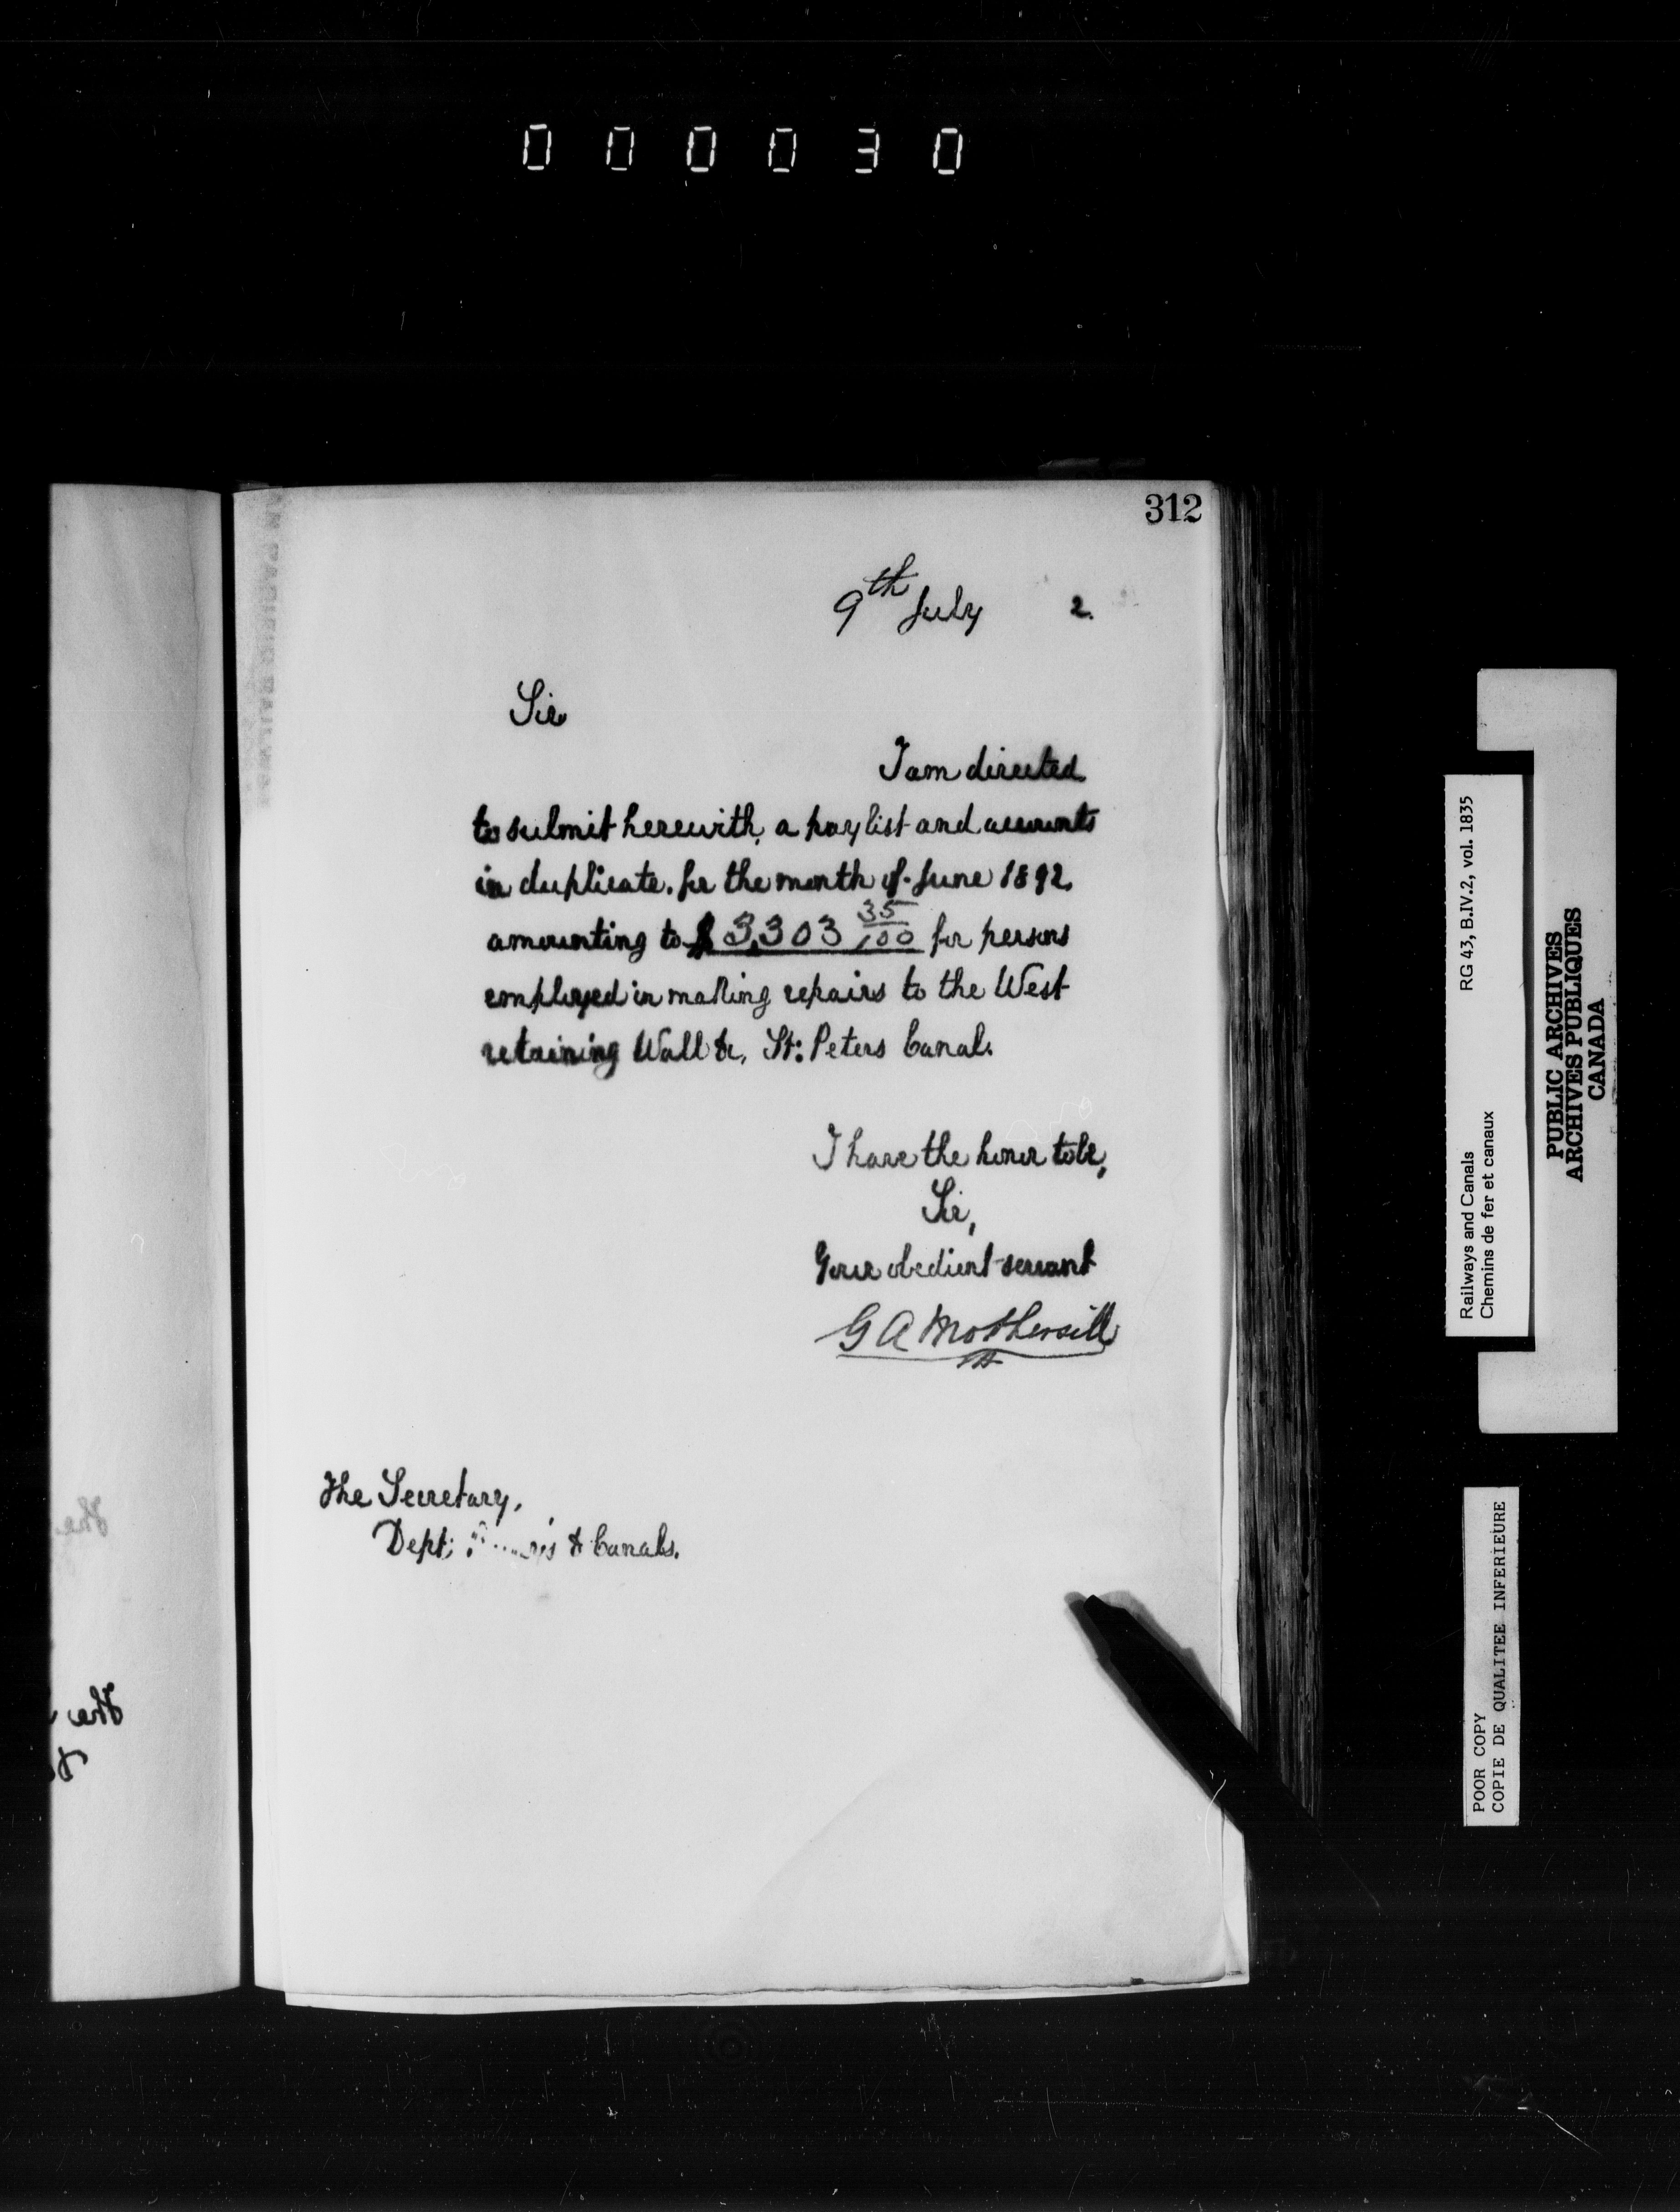 000030
312
9th July 2.
Sir
I am directed
to submit herewith, a paylist and accounts
in duplicate. for the month of June 1892,
amounting to $3,303 35/100 for persons
employed in making repairs to the West
retaining Wall &c, St: Peters Canal.
I have the honor to be,
Sir,
Your obedient servant
G A Mothersill
The Secretary,
Dept: & Canals.
The
The
RG 43, B.IV.2, vol. 1835
Railways and Canals
Chemins de fer et canaux
PUBLIC ARCHIVES
ARCHIVES PUBLIQUES
CANADA
POOR COPY
COPIE DE QUALITEE INFERIEURE